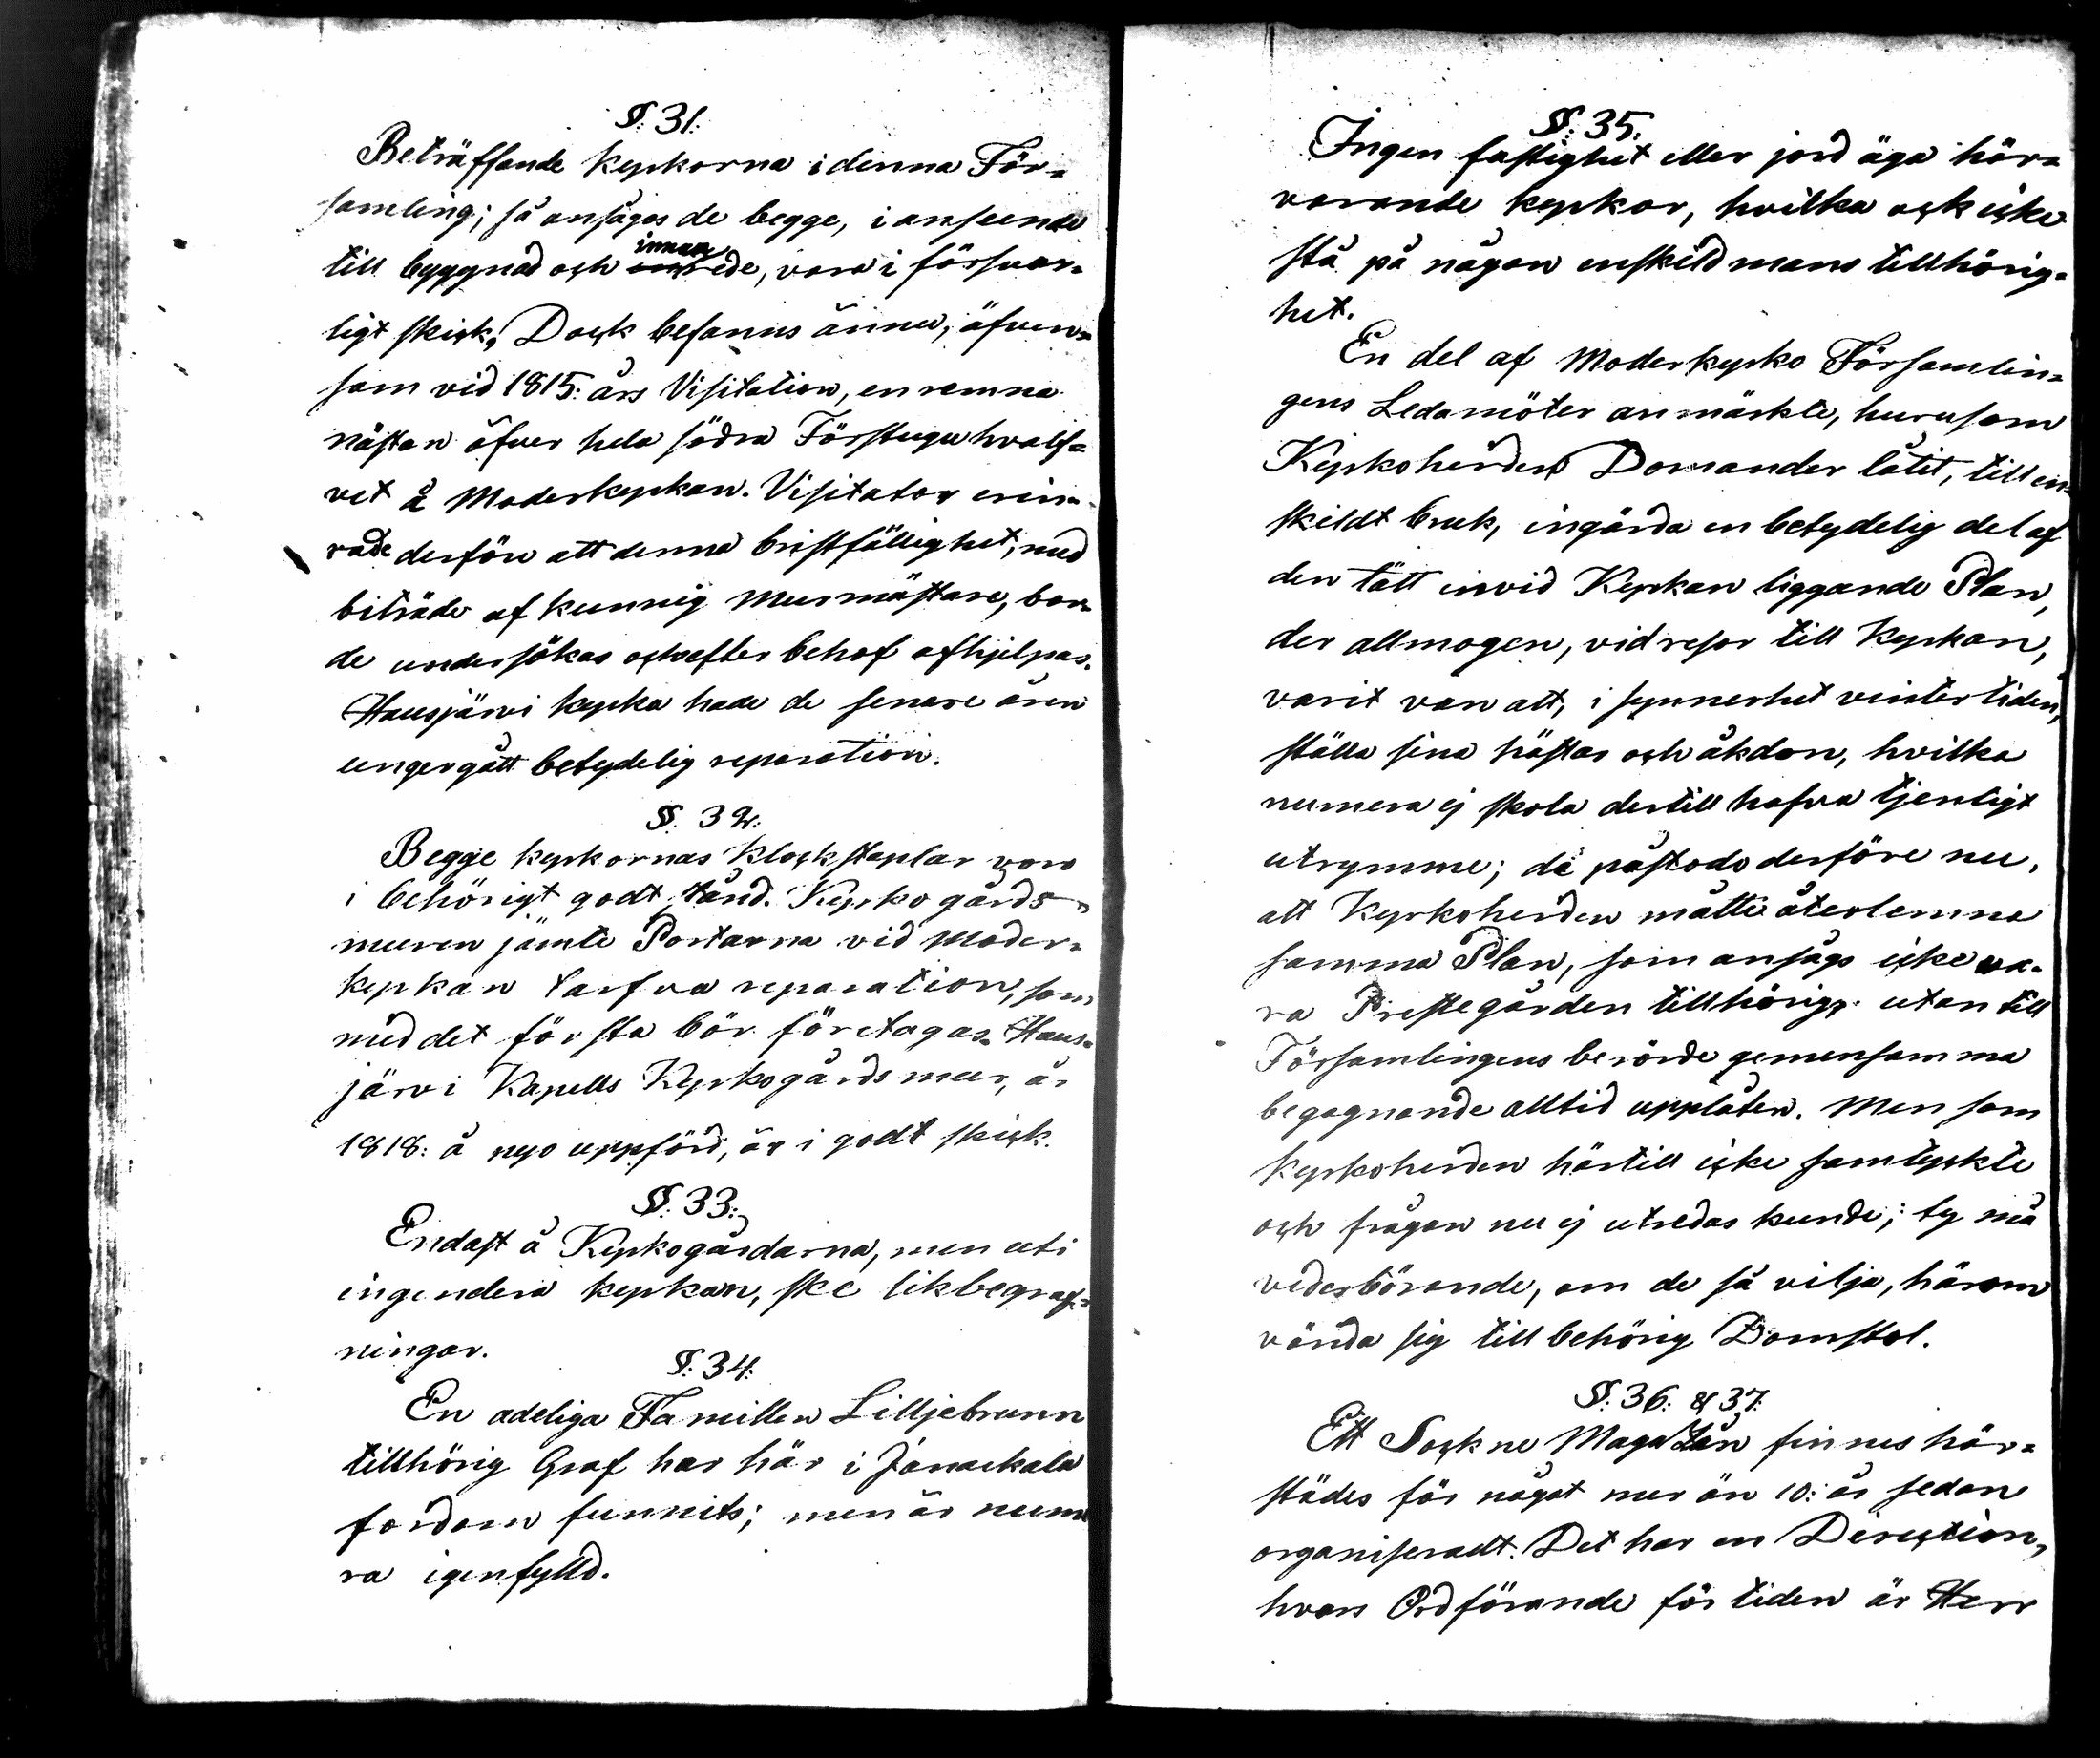 §: 31:
Beträffande kyrkorna i denna För=
samling; så ansågos de begge, i anseende
till byggnad och innanrede, vara i försvar=
ligt skick. Dock befanns ännu, äfven=
som vid 1815: års Visitation, en remna
nästan öfver hela södra Förstuguhvalf=
vet å Moderkyrkan. Visitator erin=
rade derföre att denna bristfällighet, med
biträde af kunnig Murmästare, bor=
de undersökas och efter behof afhjelpas.
Hausjärvi kyrka hade de senare åren
ungergått betydelig reparation.
§: 32:
Begge kyrkornas Klockstaplar voro
i behörigt godt stånd. Kyrkogårds=
muren jämte Portarna vid Moder=
kyrkan tarfva reparation, som
med det första bör företagas. Haus=
järvi Kapells Kyrkogårds mur, år
1818: å nyo uppförd, är i godt skick.
§: 33:
Endast å Kyrkogårdarna, men uti
ingendera kyrkan, ske likbegraf=
ningar.
§: 34:
En adeliga Famillen Lilljebrunn
tillhörig Graf har här i Janackala
fordom funnits; men är nume
ra igenfylld.
§: 35:
Ingen fastighet eller jord äga här=
varande kyrkor, hvilka ock icke
stå på någon enskild mans tillhörig=
het.
En del af Moderkyrko Församlin=
gens Ledamöter anmärkte, hurusom
Kyrkoherden Domander låtit, till en=
skildt bruk, ingärda en betydelig del af
den tätt invid Kyrkan liggande Plan,
der allmogen, vid resor till Kyrkan,
varit van att, i synnerhet vintertiden,
ställa sina hästar och åkdon, hvilka
numera ej skola dertill hafva tjenligt
utrymme; de påstodo derföre nu,
att Kyrkoherden måtte återlemna
samma Plan, som ansågs icke va=
ra Prestegården tillhörig, utan till
Församlingens berörde gemensamma
begagnande alltid upplåten. Men som
Kyrkoherden härtill icke samtyckte
och frågan nu ej utredas kunde; ty må
vederbörande, om de så vilja, härom
vända sig till behörig Domstol.
§: 36: & 37:
Ett Sockne Magazin finnes här=
städes för något mer än 10: år sedan
organiseradt. Det har en Direction,
hvars Ordförande för tiden är Herr